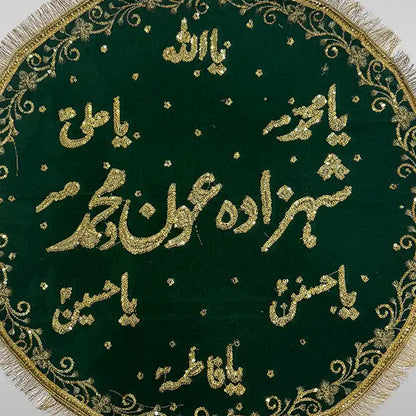 یا اللہ
یا محمدؐ یا علیؑ
شہزادہ عون و محمدؑ
یا حسنؑ یا حسینؑ
یا فاطمہؑ